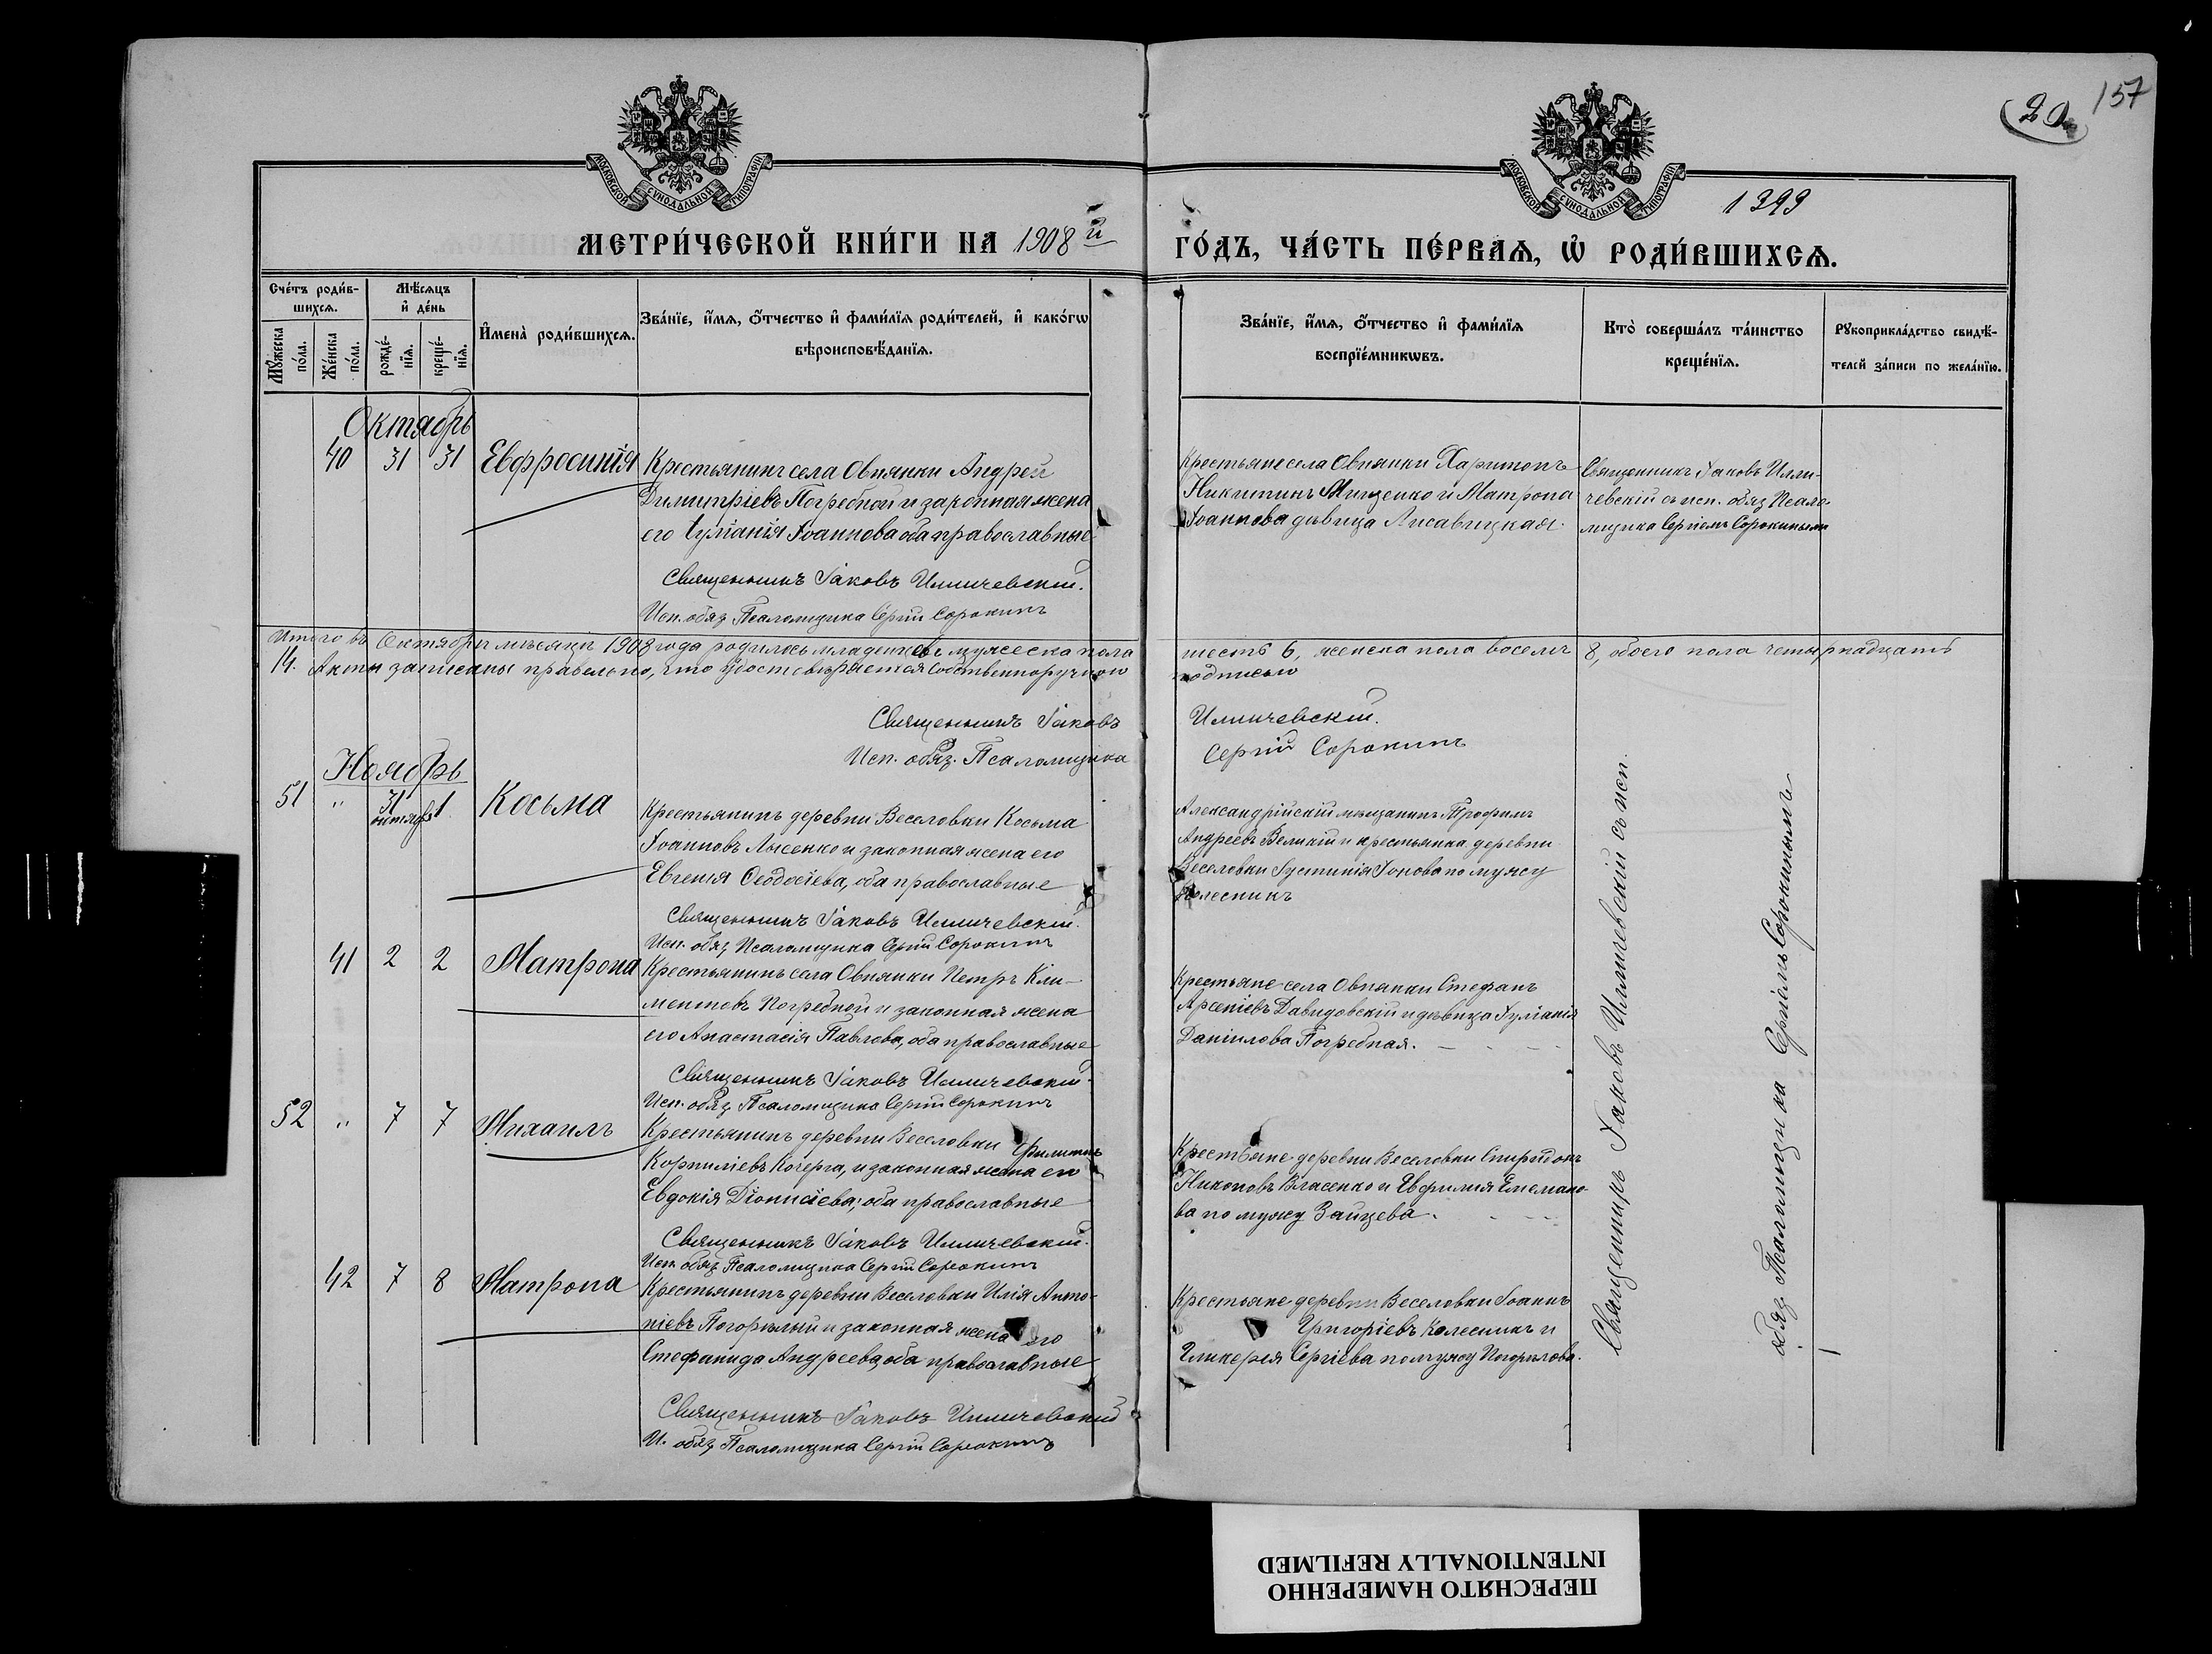 157
20
1399
МОСКОВСКОЙ СѴНОДАЛЬНОЙ ТИПОГРАФІИ
МОСКОВСКОЙ СѴНОДАЛЬНОЙ ТИПОГРАФІИ
МЕТРИ́ЧЕСКОЙ КНИ́ГИ НА 1908й
ГО́ДЪ, ЧА́СТЬ ПЕ́РВАѦ, Ѡ҆ РОДИ́ВШИХСѦ.
Сче́тъ роди́в-
шихсѧ.
Мꙋ́жеска по́ла.
Же́нска по́ла.
Мѣ́сѧцъ
и҆ де́нь
рожде́-
нїѧ.
креще́-
нїѧ.
И҆мена̀ роди́вшихсѧ.
Зва́нїе, и҆́мѧ, ѻ҆́тчество и҆ фами́лїѧ роди́телей, и҆ како́гѡ
вѣроисповѣ́данїѧ.
Зва́нїе, и҆́мѧ, ѻ҆́тчество и҆ фами́лїѧ
воспрїе́мникѡвъ.
Кто̀ соверша́лъ та́инство
креще́нїѧ.
Рꙋкоприкла́дство свидѣ́-
телей за́писи по жела́нїю.
Октябрь
40 31 31 Евфросинія
Крестьянинъ села Овнянки Андрей
Димитріевъ Погребной и законная жена
его Іуліанія Іоаннова оба православные
Священникъ Іаковъ Илличевскій.
Исп. обяз. Псаломщика Сергій Сорокинъ
Крестьяне села Овнянки Харитонъ
Никитинъ Мищенко и Матрона
Іоаннова дѣвица Лисавицкая.
Священникъ Іаковъ Илли-
чевскій съ исп. обяз. Псало-
мщика Сергіемъ Сорокинымъ
Итого въ Октябрѣ мѣсяцѣ 1908 года родилось младенцевъ мужеска пола шесть 6, женска пола восемь 8, обоего пола четырнадцать
14. Акты записаны правельно, что удостовѣряется собственноручною подписью
Священникъ Іаковъ Илличевскій.
Исп. обяз. Псаломщика Сергій Сорокинъ
Ноябрь
51 " 31 октября 1 Косьма
Крестьянинъ деревни Веселовки Косьма
Іоанновъ Лысенко и законная жена его
Евгенія Ѳеодосіева, оба православные
Священникъ Іаковъ Илличевскій.
Исп. обяз. Псаломщика Сергій Сорокинъ
Александрійскій мѣщанинъ Трофимъ
Андреевъ Великій и крестьянка деревни
Веселовки Іустинія Іонова по мужу
Колесникъ
41 2 2 Матрона
Крестьянинъ села Овнянки Петръ Кли-
ментовъ Погребной и законная жена
его Анастасія Павлова, оба православные
Священникъ Іаковъ Илличевскій.
Исп. обяз. Псаломщика Сергій Сорокинъ
Крестьяне села Овнянки Стефанъ
Арсеніевъ Давидовскій и дѣвица Іуліанія
Даніилова Погребная.
52 " 7 7 Михаилъ
Крестьянинъ деревни Веселовки Филиппъ
Корниліевъ Кочерга, и законная жена его
Евдокія Діонисіева; оба православные
Священникъ Іаковъ Илличевскій.
Исп. обяз. Псаломщика Сергій Сорокинъ
Крестьяне деревни Веселовки Спиридонъ
Никоновъ Власенко и Евфимія
по мужу Зайцева.
42 7 8 Матрона
Крестьянинъ деревни Веселовки Илія Анто-
ніевъ Погорѣлый и законная жена его
Стефанида Андреева, оба православные
Священникъ Іаковъ Илличевскій
И. обяз. Псаломщика Сергій Сорокинъ
Крестьяне деревни Веселовки Іоаннъ
Григоріевъ Колесникъ и
Гликерія Сергіева по мужу Погорѣлова.
Священникъ Іаковъ Илличевскій съ исп.
обяз. Псаломщика Сергіемъ Сорокинымъ
ПЕРЕСНЯТО НАМЕРЕННО
INTENTIONALLY REFILMED